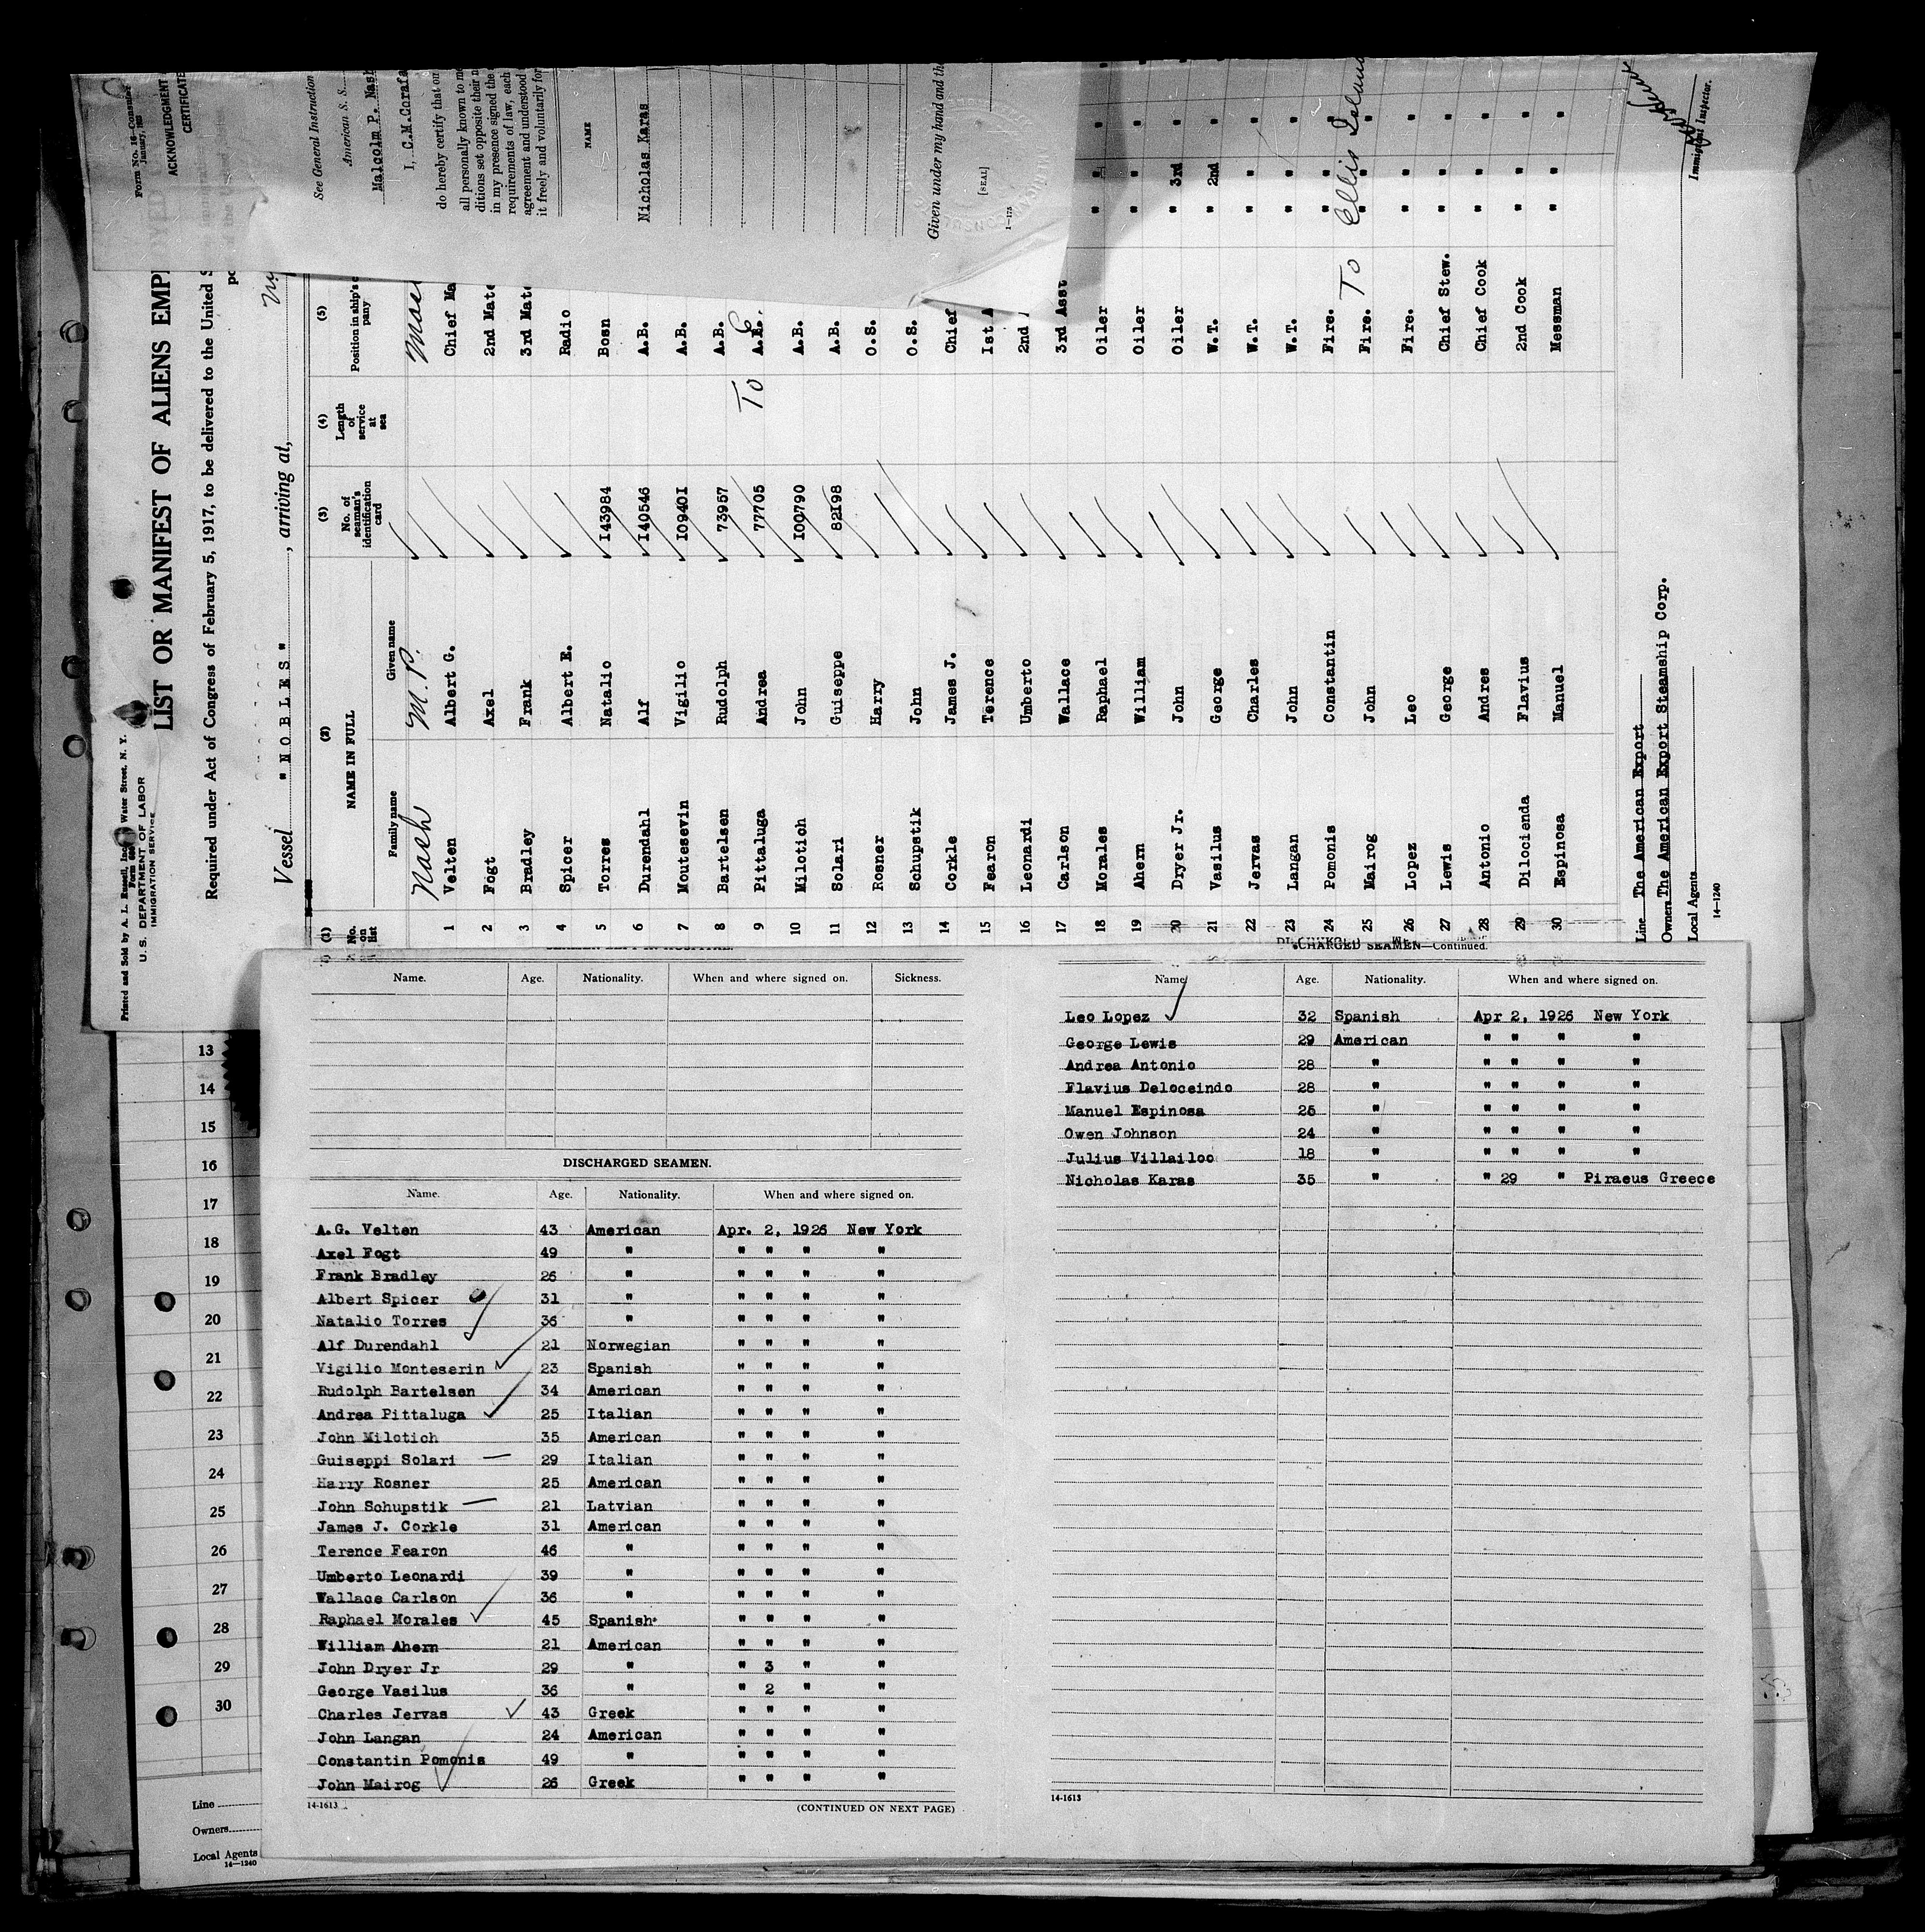 Form No. 186—Consular
January, 1923
ACKNOWLEDGMENT
CERTIFICATE
See General Instruction
American S. S.
Malcolm P. Nash
I, C.M.Gorafa
do hereby certify that on
all personally known to me
ditions set opposite their n
in my presence signed the
requirements of law, each
agreement and understood
it freely and voluntarily for
NAME
Nicholas Karas
Given under my hand and the
[SEAL]
1—173
Printed and Sold by A. L. Russell, Inc. Water Street, N. Y.
U. S. DEPARTMENT OF LABOR
IMMIGRATION SERVICE
LIST OR MANIFEST OF ALIENS EMP
Required under Act of Congress of February 5, 1917, to be delivered to the United S
Vessel "NOBLES" , arriving at,
(1) (2) (3) (4) (5)
No. on list NAME IN FULL No. of seaman's identification card Length of service at sea Position in ship's pany
Family name Given name
Nash M. P.
1 Velten Albert G. Chief Ma
2 Fogt Axel 2nd Mate
3 Bradley Frank 3rd Mate
4 Spicer Albert E. Radio
5 Torres Natalio 143984 Bosn
6 Durendahl Alf 140546 A.B.
7 Moutesevin Vigilio 109401 A.B.
8 Bartelsen Rudolph 73957 A.B.
9 Pittaluga Andrea 77705 To A.B.
10 Milotich John 100790 A.B.
11 Solari Guiseppe 82198 A.B.
12 Rosner Harry O.S.
13 Schupstik John O.S.
14 Corkle James J. Chief
15 Fearon Terence 1st A
16 Leonardi Umberto 2nd
17 Carlson Wallace 3rd Asst
18 Morales Raphael Oiler " "
19 Ahern William Oiler " "
20 Dryer Jr. John Oiler " 3rd
21 Vasilus George W.T. " 2nd "
22 Jervas Charles W.T. " " "
23 Langan John W.T. " " "
24 Pomonis Constantin Fire. " " "
25 Mairog John Fire. To Ellis Island " " "
26 Lopez Leo Fire. " " "
27 Lewis George Chief Stew. " " "
28 Antonio Andres Chief Cook " " "
29 Dilocienda Flavius 2nd Cook " " "
30 Espinosa Manuel Messman " " "
Line The American Export
Owners The American Export Steamship Corp.
Local Agents
14—1240
Immigrant Inspector.
13
14
15
16
17
18
19
20
21
22
23
24
25
26
27
28
29
30
Line
Owners
Local Agents
14—1240
Name. Age. Nationality. When and where signed on. Sickness.
DISCHARGED SEAMEN.
Name. Age. Nationality. When and where signed on.
A.G. Velten 43 American Apr. 2, 1926 New York
Axel Fogt 49 " " " " "
Frank Bradley 26 " " " " "
Albert Spicer 31 " " " " "
Natalio Torres 36 " " " " "
Alf Durendahl 21 Norwegian " " " "
Vigilio Monteserin 23 Spanish " " " "
Rudolph Bartelsen 34 American " " " "
Andrea Pittaluga 25 Italian " " " "
John Milotich 35 American " " " "
Guiseppi Solari 29 Italian " " " "
Harry Rosner 25 American " " " "
John Schupstik 21 Latvian " " " "
James J. Corkle 31 American " " " "
Terence Fearon 46 " " " " "
Umberto Leonardi 39 " " " " "
Wallace Carlson 36 " " " " "
Raphael Morales 45 Spanish " " " "
William Ahern 21 American " " " "
John Dryer Jr 29 " " 3 " "
George Vasilus 36 " " 2 " "
Charles Jervas 43 Greek " " " "
John Langan 24 American " " " "
Constantin Pomonis 49 " " " " "
John Mairog 26 Greek " " " "
14-1613
(CONTINUED ON NEXT PAGE)
CHARGED SEAMEN—Continued.
Name Age. Nationality. When and where signed on.
Leo Lopez 32 Spanish Apr 2, 1926 New York
George Lewis 29 American " " " "
Andrea Antonio 28 " " " " "
Flavius Deloceindo 28 " " " " "
Manuel Espinosa 25 " " " " "
Owen Johnson 24 " " " " "
Julius Villailoo 18 " " " " "
Nicholas Karas 35 " " 29 " Piraeus Greece
14-1613